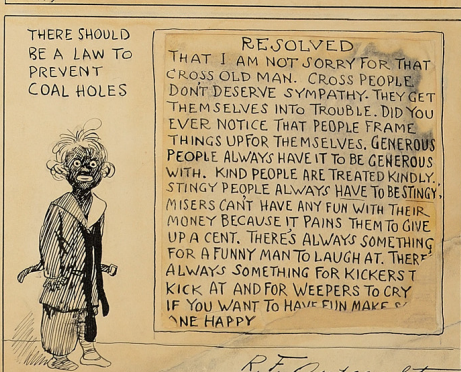 THERE SHOULD
BE A LAW TO
PREVENT
COAL HOLES
RESOLVED
THAT I AM NOT SORRY FOR THAT
CROSS OLD MAN. CROSS PEOPLE
DON'T DESERVE SYMPATHY. THEY GET
THEMSELVES INTO TROUBLE. DID YOU
EVER NOTICE THAT PEOPLE FRAME
THINGS UP FOR THEMSELVES. GENEROUS
PEOPLE ALWAYS HAVE IT TO BE GENEROUS
WITH. KIND PEOPLE ARE TREATED KINDLY.
STINGY PEOPLE ALWAYS HAVE TO BE STINGY,
MISERS CAN'T HAVE ANY FUN WITH THEIR
MONEY BECAUSE IT PAINS THEM TO GIVE
UP A CENT. THERE'S ALWAYS SOMETHING
FOR A FUNNY MAN TO LAUGH AT. THERE'
ALWAYS SOMETHING FOR KICKERS T
KICK AT AND FOR WEEPERS TO CRY
IF YOU WANT TO HAVE FUN MAKE S
NE HAPPY
R.F.